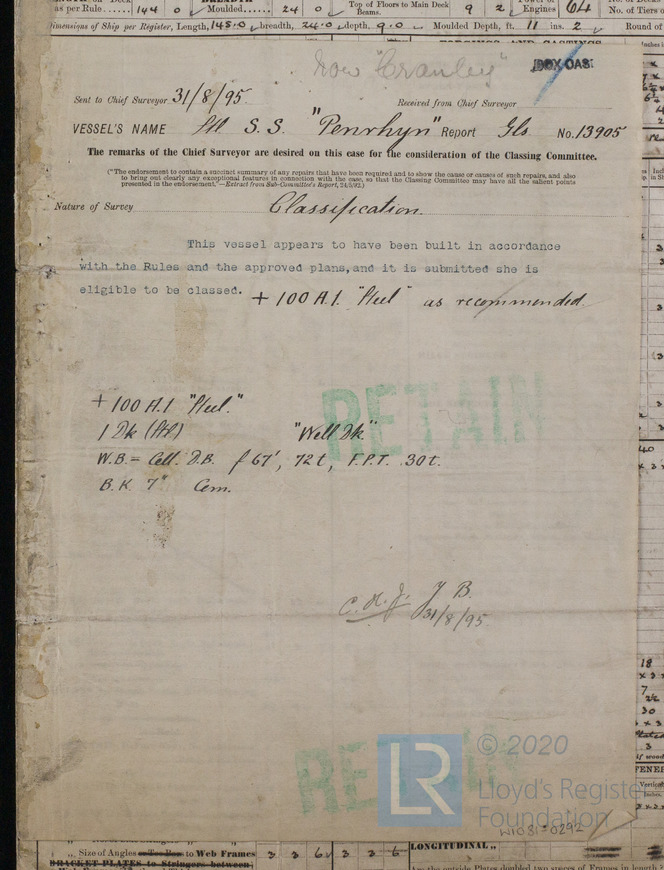 as per Rule...... 144 0 Moulded...... 24 0 Top of Floors to Main Deck Beams. 9 2 Engines 64 No. of Tiers o
imensions of Ship per Register, Length, 145.0 breadth, 24.0 depth, 9.0 Moulded Depth, ft. 11 ins. 2 Round of
Now "Cranley"
BOX OAS
Sent to Chief Surveyor 31/8/95. Received from Chief Surveyor
VESSEL'S NAME Stl S.S. "Penrhyn" Report Gls No. 13905
The remarks of the Chief Surveyor are desired on this case for the consideration of the Classing Committee.
("The endorsement to contain a succinct summary of any repairs that have been required and to show the cause or causes of such repairs, and also
to bring out clearly any exceptional features in connection with the case, so that the Classing Committee may have all the salient points
presented in the endorsement."—Extract from Sub-Committee's Report, 24/5/92.)
Nature of Survey Classification.
This vessel appears to have been built in accordance
with the Rules and the approved plans, and it is submitted she is
eligible to be classed. + 100 A.1. "Steel" as recommended
+ 100 A.1 "Steel."
1 Dk (Stl) "Well Dk."
W.B. = Cell. D.B. f 67', 72t, F.P.T. 30t.
B.K. 7" Cem.
RETAIN
J B.
31/8/95
RETAIN
LR © 2020
Lloyd's Register
Foundation
W1031-0292
Size of Angles to Web Frames 3 3 6 3 3 6 LONGITUDINAL „
BRACKET PLATES to Stringers between